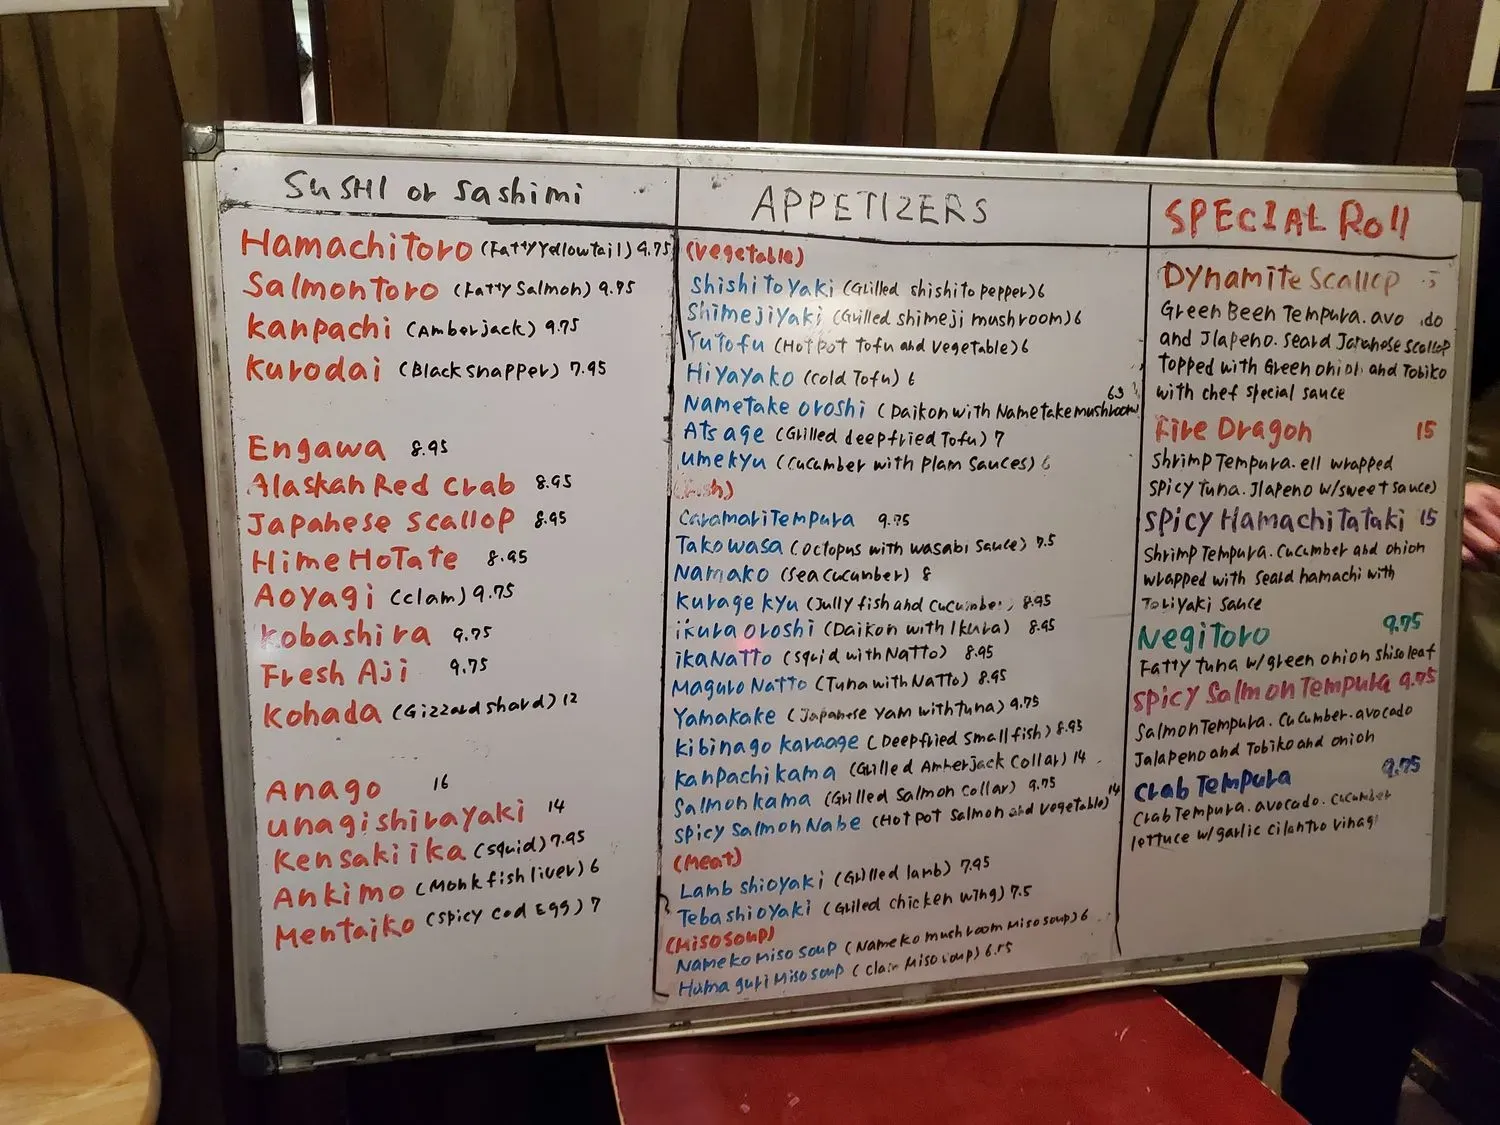 SUSHI or Sashimi
Hamachi Toro (Fatty Yellow tail) 9.75
Salmon Toro (Fatty Salmon) 9.95
Kanpachi (Amberjack) 9.75
Kurodai (Black snapper) 7.95
Engawa 8.95
Alaskan Red Crab 8.95
Japanese Scallop 8.95
Hime HoTate 8.95
Aoyagi (clam) 9.75
Kobashira 9.75
Fresh Aji 9.75
Kohada (Gizzard shard) 12
Anago 16
unagishirayaki 14
Kensaki ika (squid) 7.95
Ankimo (Monk fish liver) 6
Mentaiko (spicy cod Egg) 7
APPETIZERS
(Vegetable)
Shishi To Yaki (Grilled shishito pepper) 6
Shimeji Yaki (Grilled shimeji mushroom) 6
YuTofu (Hot pot Tofu and vegetable) 6
Hiyayako (cold Tofu) 6
Nametake oroshi (Daikon with Nametake mushroom)
Ats age (Grilled deep fried Tofu) 7
umekyu (cucumber with plam sauces) 6
(Fish)
Caramari Tempura 9.75
Tako wasa (octopus with wasabi sauce) 7.5
Namako (sea cucumber) 8
Kurage kyu (Jully fish and cucumber) 8.95
ikura oroshi (Daikon with Ikura) 8.95
ika Natto (squid with Natto) 8.95
Maguro Natto (Tuna with Natto) 8.95
Yamakake (Japanese Yam with tuna) 9.75
Kibinago karaage (Deep fried small fish) 8.95
Kanpachi kama (Grilled Amberjack Collar) 14
Salmon kama (Grilled Salmon collar) 9.75
Spicy Salmon Nabe (Hot pot Salmon and vegetable) 14
(Meat)
Lamb shioyaki (Grilled lamb) 7.95
Teba shioyaki (Grilled chicken wing) 7.5
(Miso soup)
Nameko Miso soup (Nameko mushroom Miso soup) 6
Hama guri Miso soup (clam Miso soup)
SPECIAL Roll
Dynamite Scallop
Green Been Tempura. avo do
and Jlapeno. Seard Japanese scallop
Topped with Green onion and Tobiko
with chef special sauce
Fire Dragon 15
Shrimp Tempura. ell wrapped
spicy Tuna. Jlapeno w/sweet sauce)
Spicy Hamachi Tataki 15
Shrimp Tempura. Cucumber and onion
wrapped with seard hamachi with
Toriyaki sauce
Negi Toro 9.75
Fatty tuna w/green onion shiso leaf
Spicy Salmon Tempura 9.75
Salmon Tempura. Cucumber. avocado
Jalapeno and Tobiko and onion
Crab Tempura 9.75
Crab Tempura. avocado. cucumber
lettuce w/garlic cilantro vinag